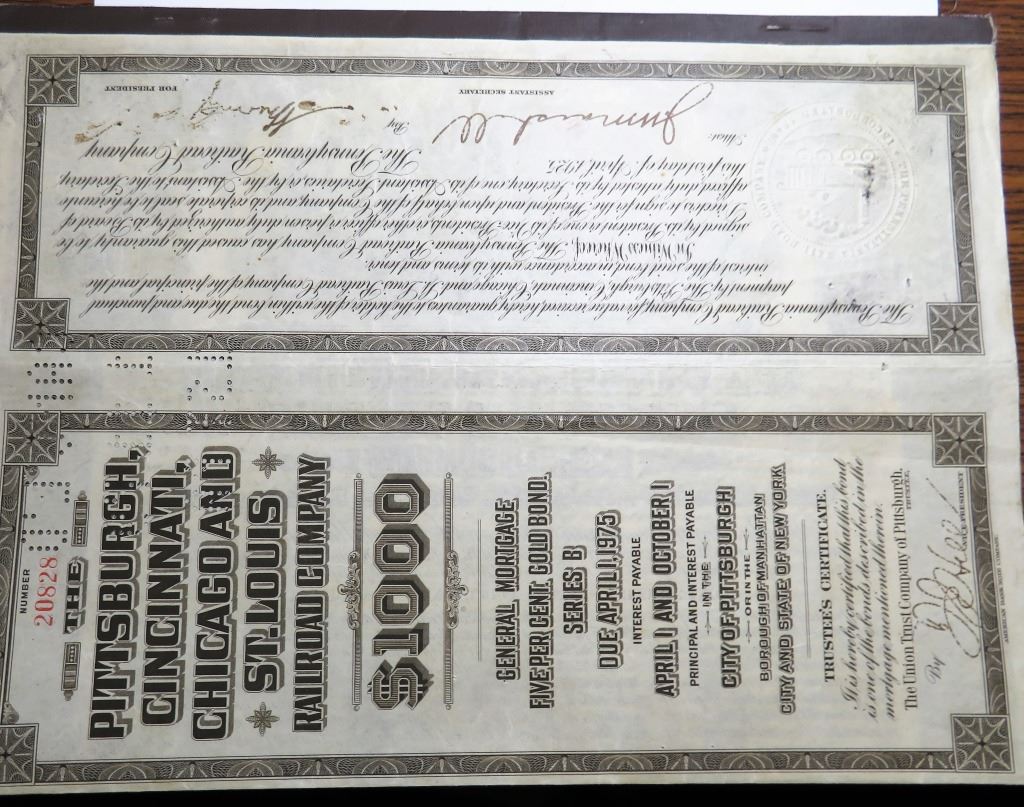 NUMBER
20828
THE
PITTSBURGH,
CINCINNATI,
CHICAGO AND
ST. LOUIS
RAILROAD COMPANY
$1000
GENERAL MORTGAGE
FIVE PER CENT. GOLD BOND.
SERIES B
DUE APRIL 1, 1975
INTEREST PAYABLE
APRIL 1 AND OCTOBER 1
PRINCIPAL AND INTEREST PAYABLE
IN THE
CITY OF PITTSBURGH
OR IN THE
BOROUGH OF MANHATTAN
CITY AND STATE OF NEW YORK
TRUSTEE'S CERTIFICATE.
It is hereby certified that this bond
is one of the bonds described in the
mortgage mentioned therein.
The Union Trust Company of Pittsburgh,
TRUSTEE,
By
VICE PRESIDENT
AMERICAN BANK NOTE COMPANY.
The Pennsylvania Railroad Company, for value received hereby guarantees to the holder of the within bond the due and punctual
payment by The Pittsburgh, Cincinnati, Chicago and St. Louis Railroad Company of the principal and the
interest of the said bond in accordance with its terms and tenor.
In Witness Whereof, The Pennsylvania Railroad Company has caused this guaranty to be
signed by its President or one of its Vice Presidents or other officer authorized by its Board of
Directors to sign for the President and upon behalf of the Company and its corporate seal to be hereunto
affixed duly attested by its Secretary, one of its Assistant Secretaries, or by the Assistant to the Secretary,
this first day of April, 1925.
The Pennsylvania Railroad Company,
Attest:
By
ASSISTANT SECRETARY
FOR PRESIDENT